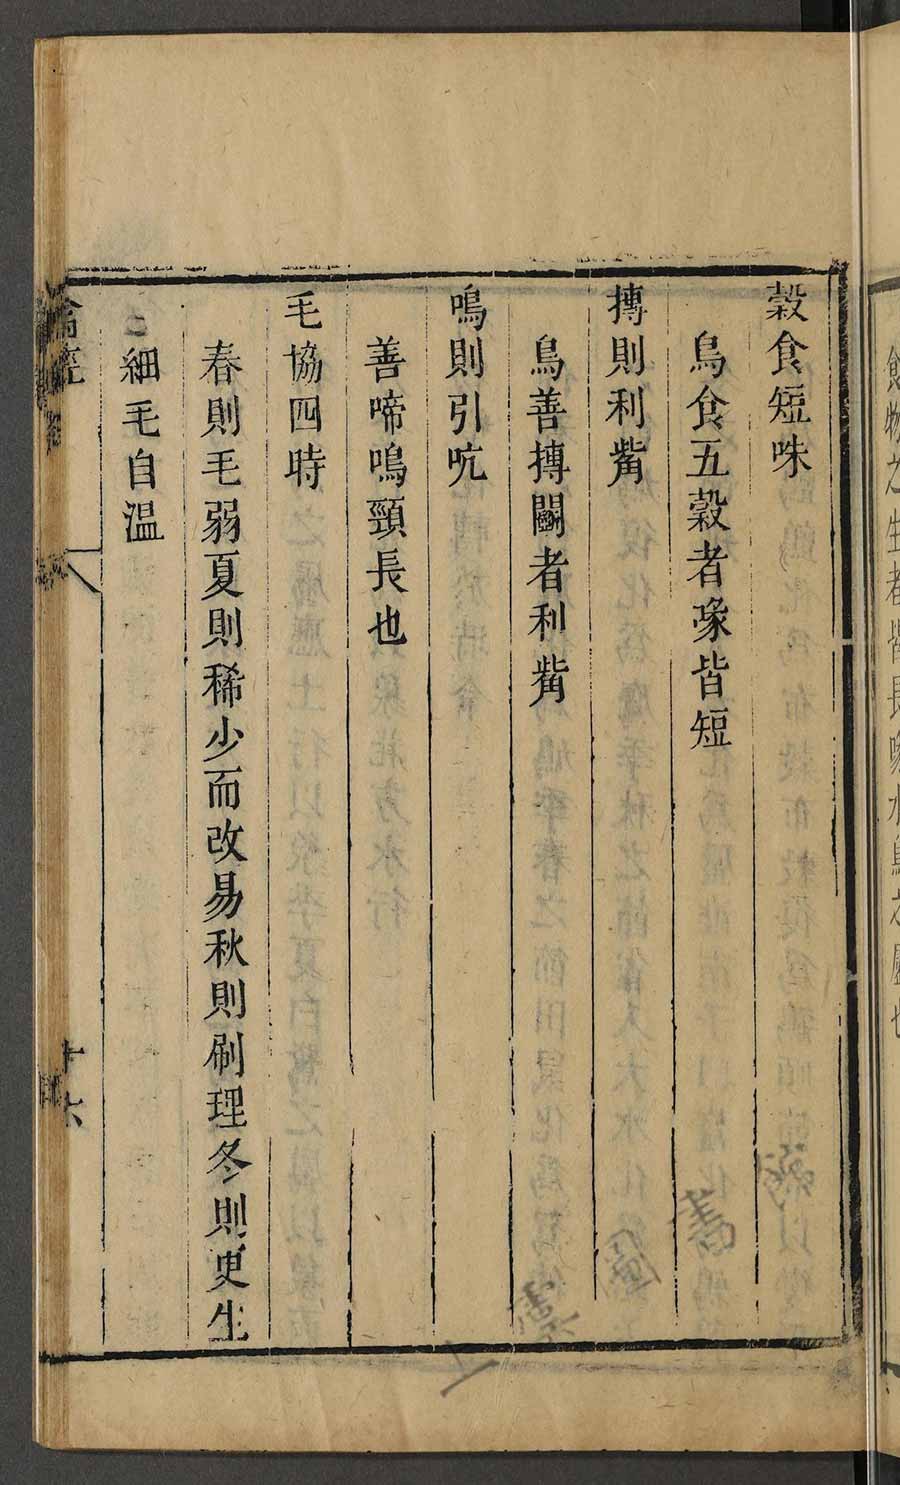 食物之生者皆長喙水鳥之屬也
穀食短咮
鳥食五穀者喙皆短
搏則利觜
鳥善搏鬭者利觜
鳴則引吭
善啼鳴頸長也
毛協四時
春則毛弱夏則稀少而改易秋則刷理冬則更生
細毛自溫
禽經
十六